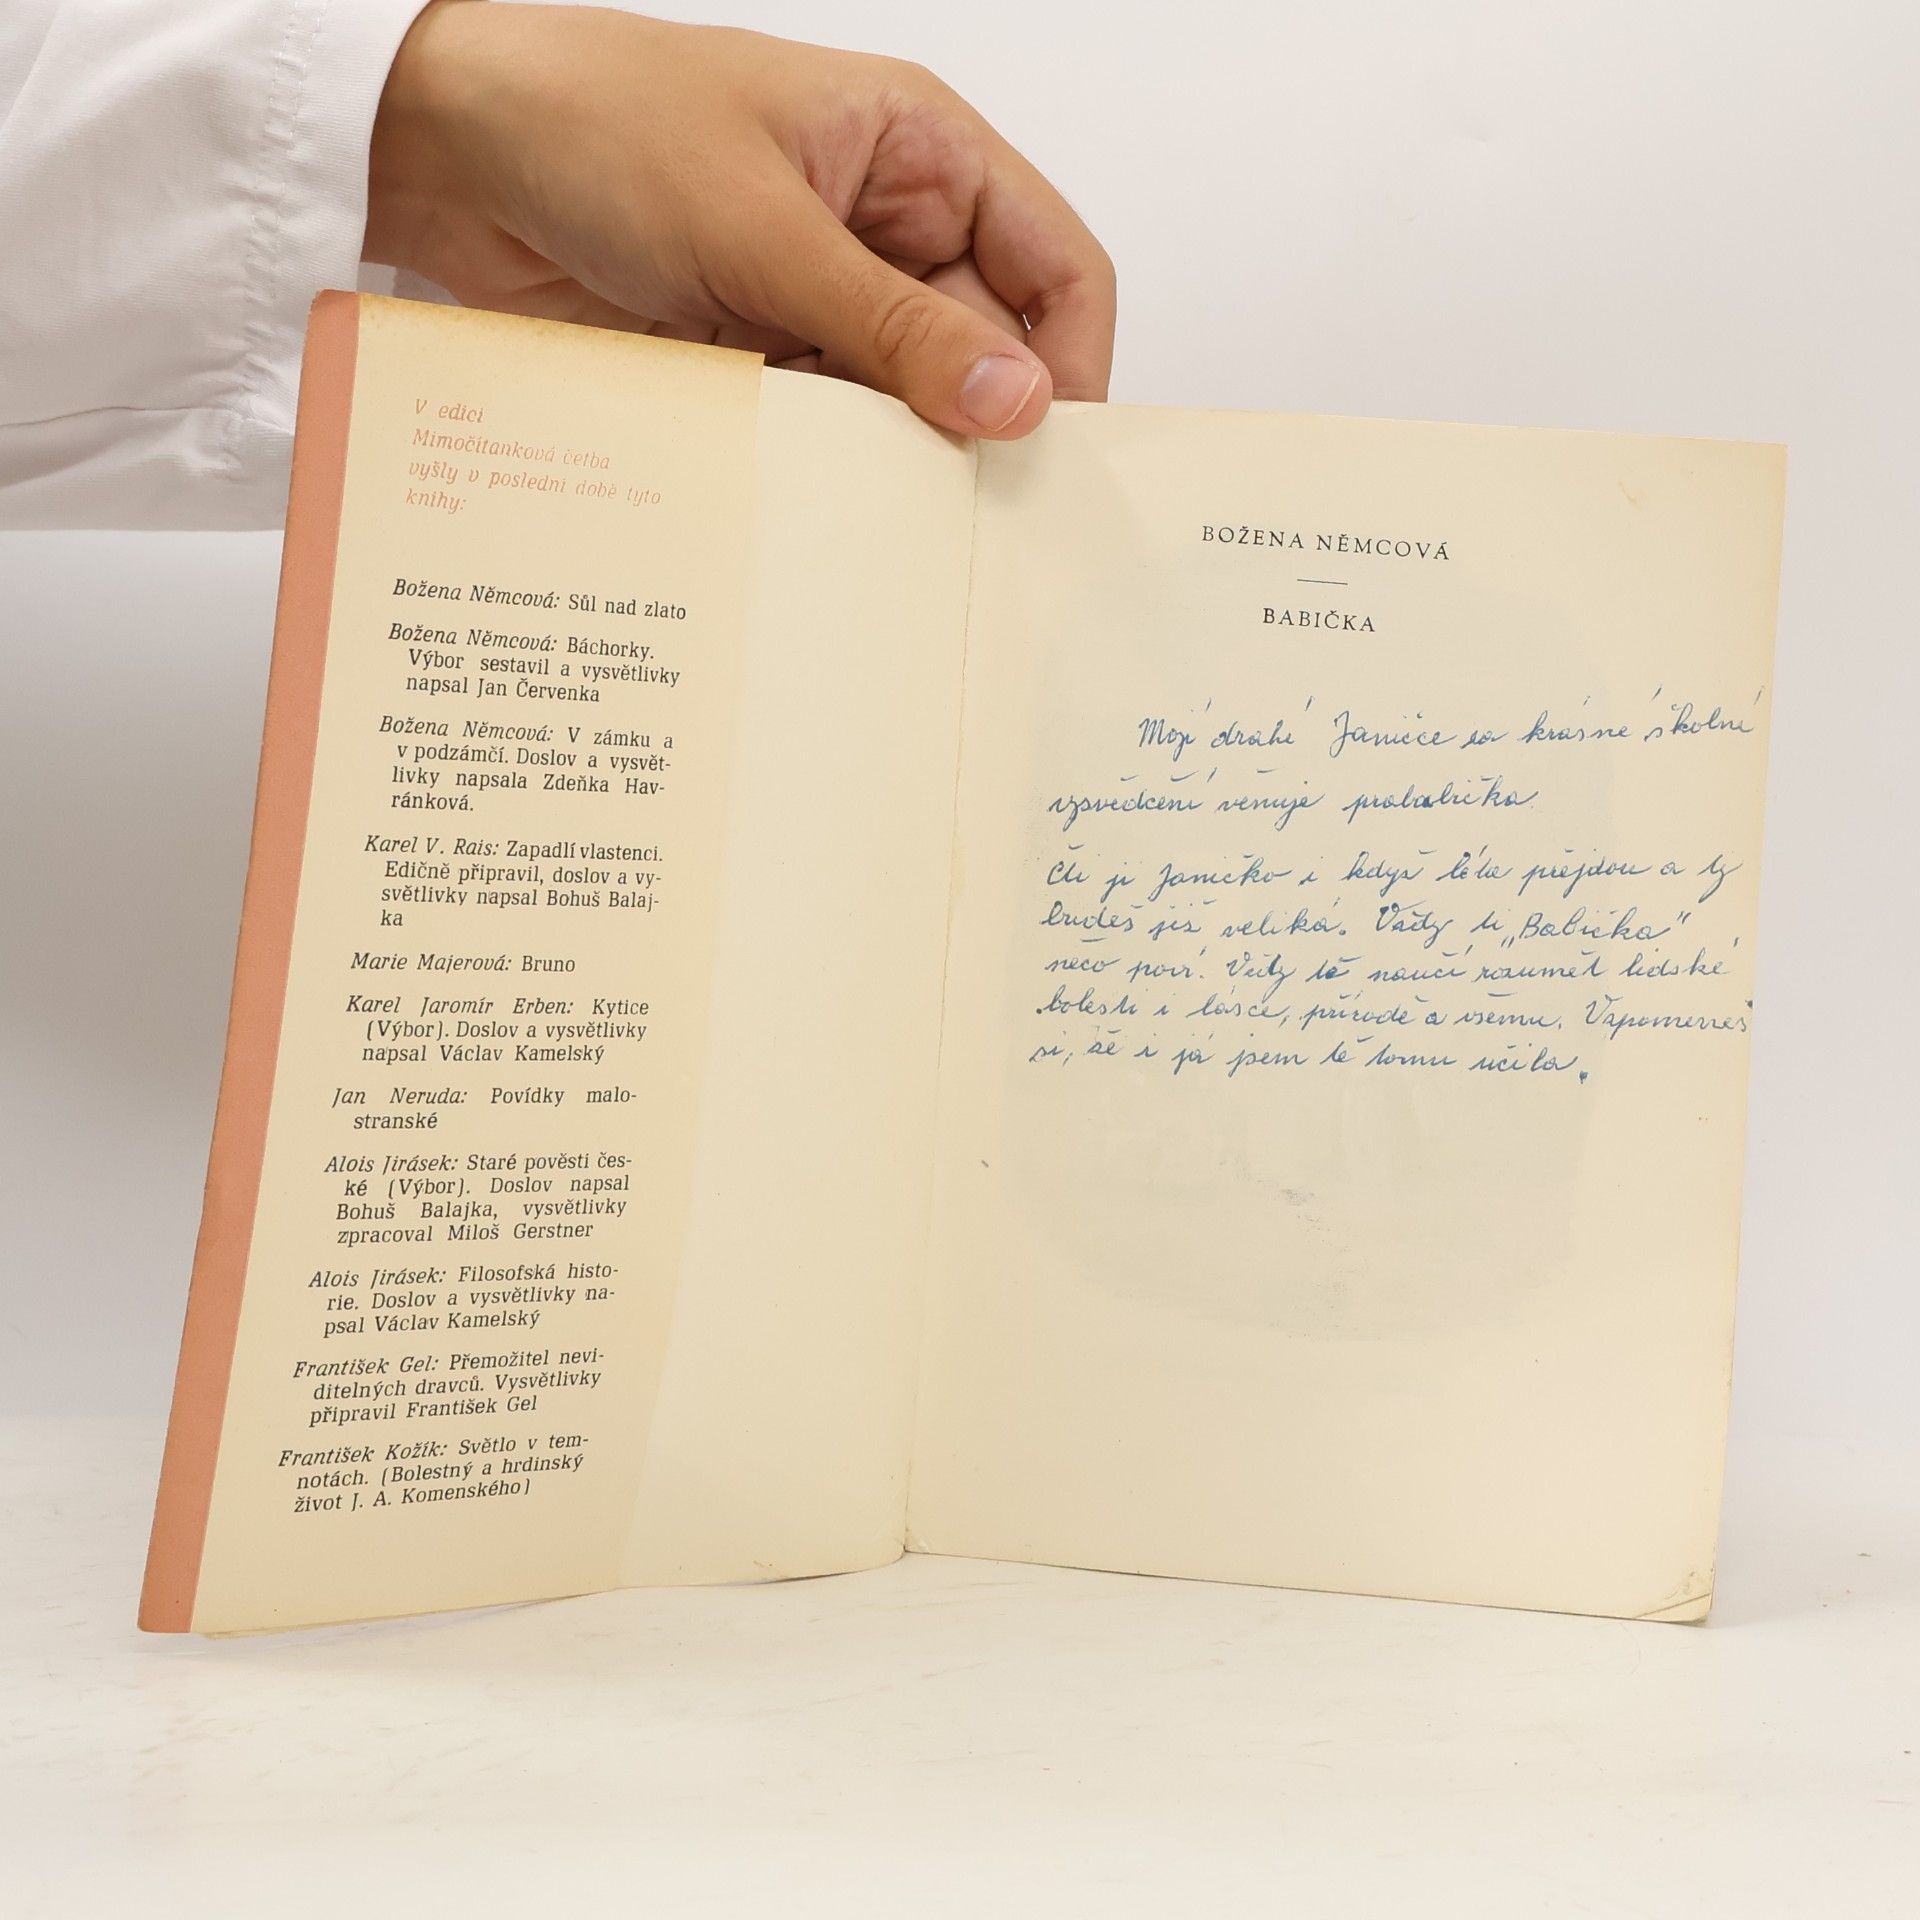 V edici
Mimočítanková četba
vyšly v poslední době tyto
knihy:
Božena Němcová: Sůl nad zlato
Božena Němcová: Báchorky.
Výbor sestavil a vysvětlivky
napsal Jan Červenka
Božena Němcová: V zámku a
v podzámčí. Doslov a vysvět-
livky napsala Zdeňka Hav-
ránková.
Karel V. Rais: Zapadlí vlastenci.
Edičně připravil, doslov a vy-
světlivky napsal Bohuš Balaj-
ka
Marie Majerová: Bruno
Karel Jaromír Erben: Kytice
(Výbor). Doslov a vysvětlivky
napsal Václav Kamelský
Jan Neruda: Povídky malo-
stranské
Alois Jirásek: Staré pověsti čes-
ké (Výbor). Doslov napsal
Bohuš Balajka, vysvětlivky
zpracoval Miloš Gerstner
Alois Jirásek: Filosofská histo-
rie. Doslov a vysvětlivky na-
psal Václav Kamelský
František Gel: Přemožitel nevi-
ditelných dravců. Vysvětlivky
připravil František Gel
František Kožík: Světlo v tem-
notách. (Bolestný a hrdinský
život J. A. Komenského)
BOŽENA NĚMCOVÁ
BABIČKA
Mojí drahé Janičce za krásné školní
vysvědčení věnuje prababička.
Čti ji Janičko i když léta přejdou a ty
budeš již veliká. Vždy ti „Babička"
něco poví. Vždy tě naučí rozumět lidské
bolesti i lásce, přírodě a všemu. Vzpomeneš
si, že i já jsem tě tomu učila.